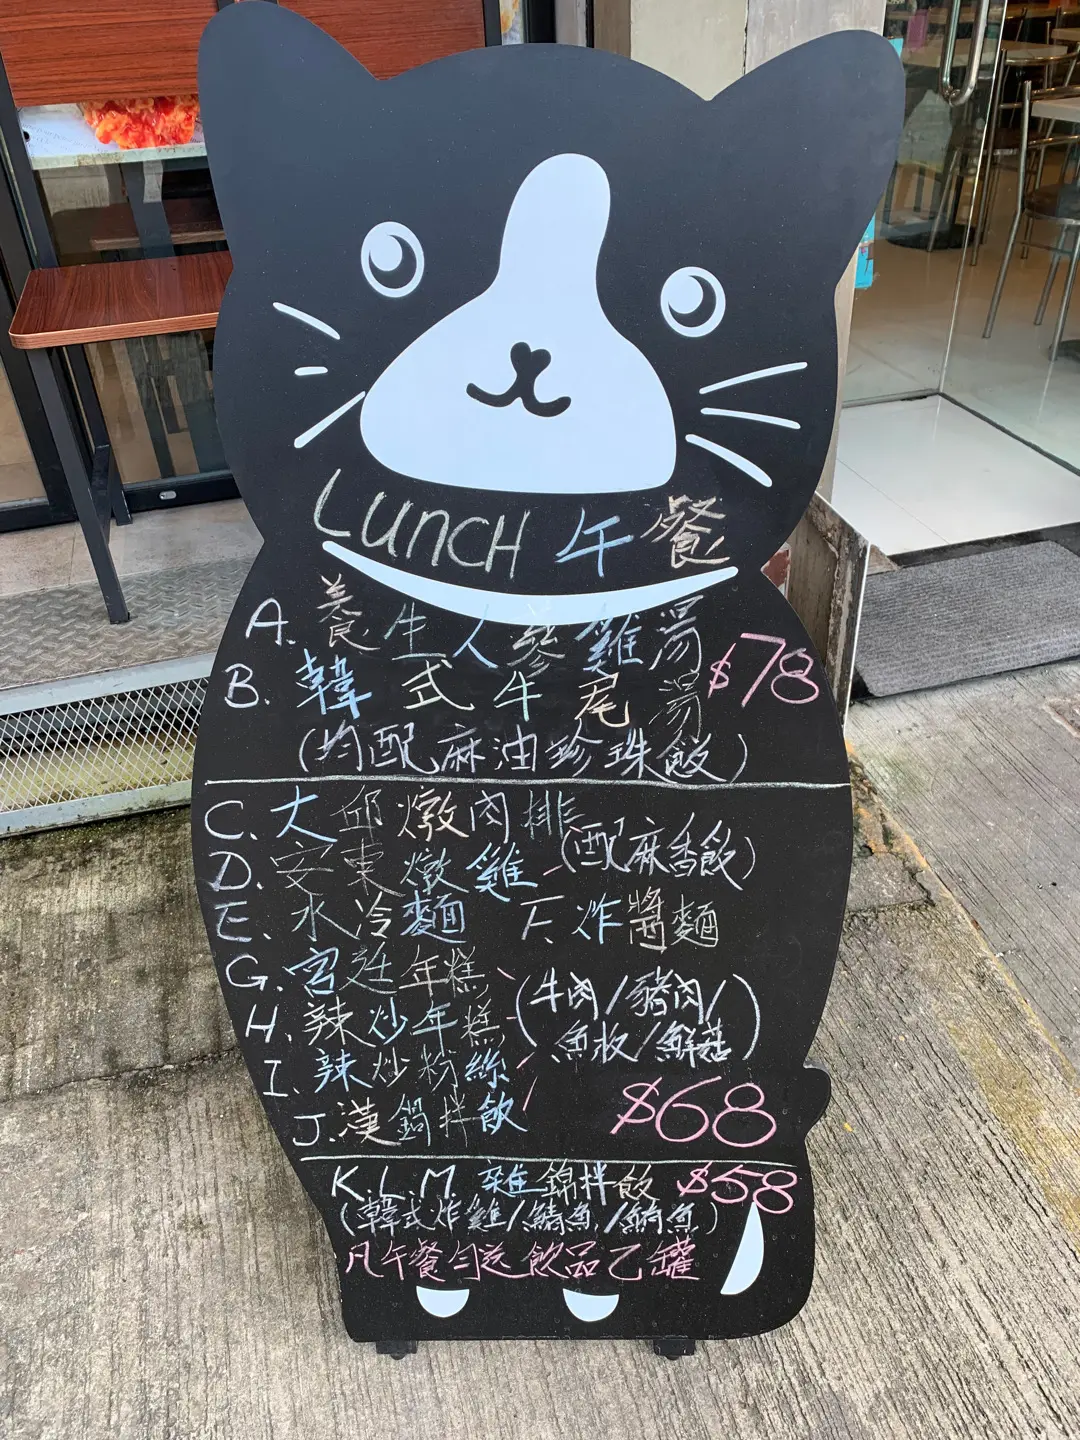 LUNCH 午餐
A. 養生人參雞湯
B. 韓式牛尾湯 $78
(均配麻油珍珠飯)
C. 大邱燉肉排
D. 安東燉雞 (配麻香飯)
E. 水冷麵 F. 炸醬麵
G. 宮廷年糕
H. 辣炒年糕 (牛肉/豬肉/
I. 辣炒粉絲 魚板/鮮菇)
J. 漢鍋拌飯 $68
K. L. M 雜錦拌飯 $58
(韓式炸雞/鯖魚/魚)
凡午餐勻送飲品乙罐